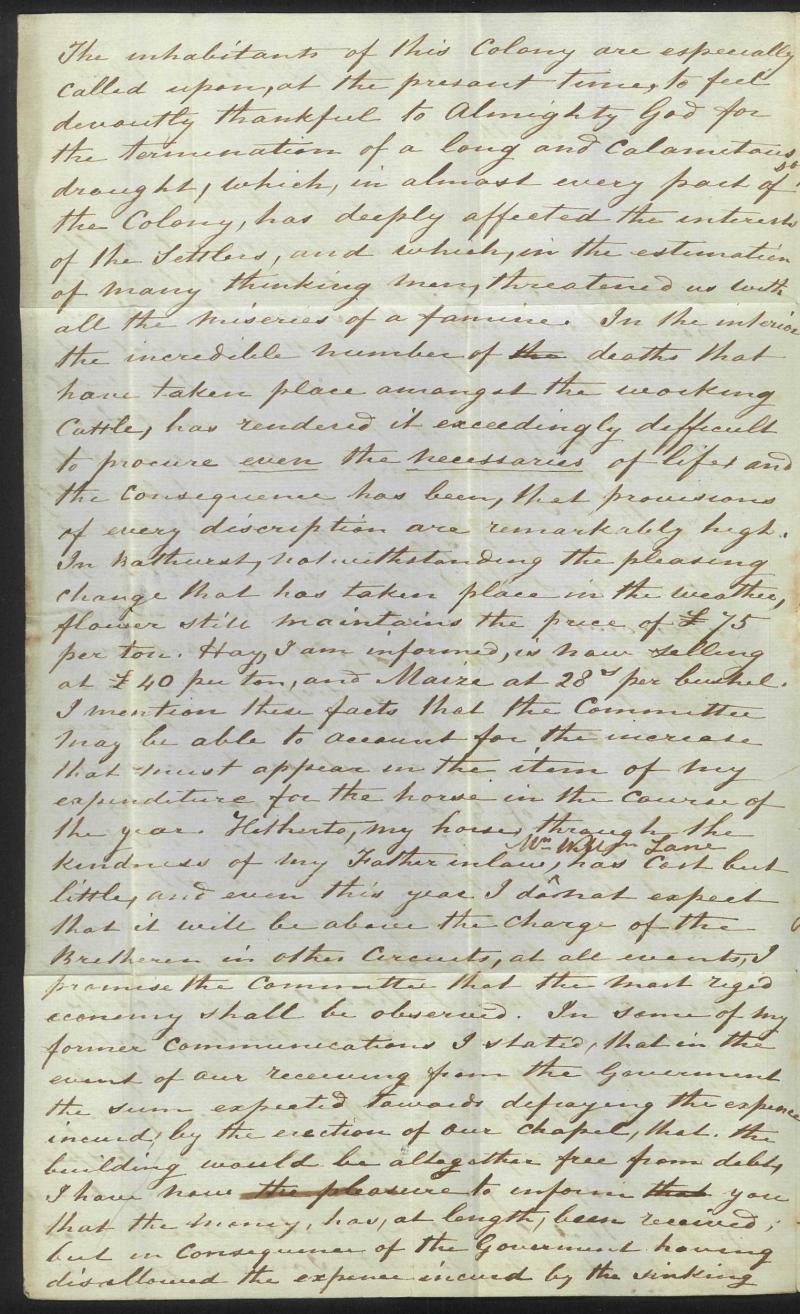 The inhabitants of this Colony are especially
called upon, at the present time, to feel
devoutly thankful to Almighty God for
the termination of a long and Calamitous
drought, which, in almost every part of
the Colony, has deeply affected the interests
of the Settlers, and which, in the estimation
of many thinking men, threatened us with
all the miseries of a famine. In the interior
the incredible number of the deaths that
have taken place amongst the working
Cattle, has rendered it exceedingly difficult
to procure even the necessaries of life, and
the consequence has been, that provisions
of every discription are remarkably high.
In Bathurst, notwithstanding the pleasing
change that has taken place in the weather,
flower still maintains the price of £75
per ton. Hay, I am informed, is now selling
at £40 per ton, and Maize at 28s per bushel.
I mention these facts that the Committee
may be able to account for the increase
that must appear in the item of my
expenditure for the horse in the course of
the year. Hitherto, my horse, through the
kindness of my Father in law, Mr. Willm Lane has Cost but
little, and even this year I do not expect
that it will be above the charge of the
Bretheren in other Circuits, at all events, I
promise the Committee that the most riged
economy shall be observed. In some of my
former Communications I stated, that in the
event of our receiving from the Goverment
the sum expected towards defraying the expence
incured, by the erection of our Chapel, that. the
building would be altogather free from debt,
I have now the pleasure to inform that you
that the money, has, at length, been received;
but in consequence of the Goverment having
disallowed the expence incured by the sinking